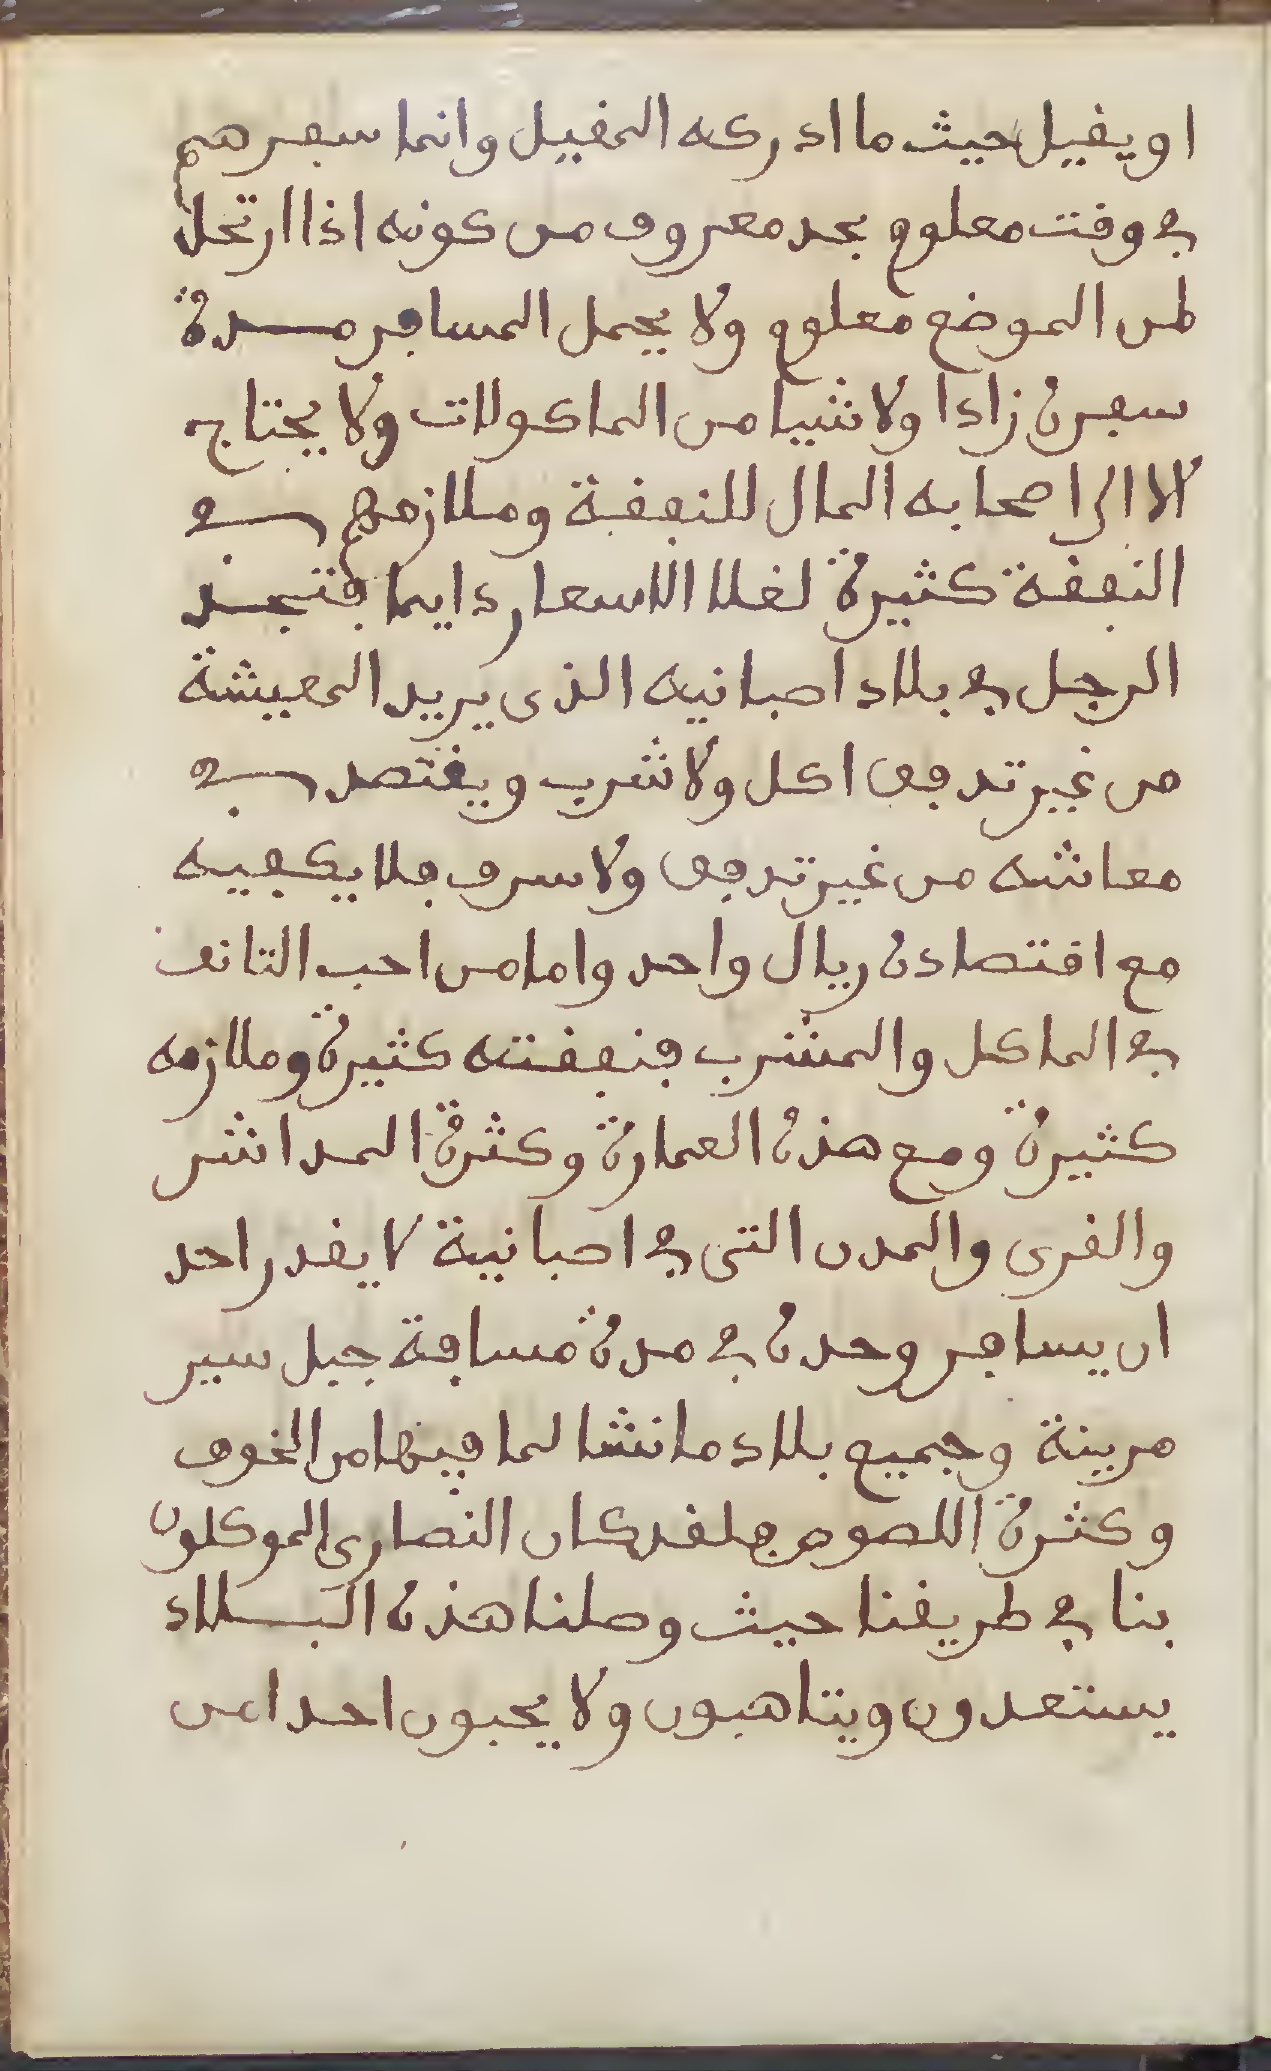 او يقيل حيث ما ادركه المقيل وانما سفرهم
في وقت معلوم بحد معروف من كونه اذا ارتحل
من الموضع معلوم ولا يحمل المسافر مدة
سفره زادا ولا شيا من الماكولات ولا يحتاج
الا الى اصحابه المال للنفقة وملازمهم في
النفقة كثيرة لغلا الاسعار دايما فتجد
الرجل في بلاد اصبانيه الذي يريد المعيشة
من غير تدفق اكل ولا شرب ويقتصد في
معاشه من غير تدفق ولا سرف فلا يكفيه
مع اقتصاده ريال واحد واما من احب التانق
في الماكل والمشرب فنفقته كثيرة وملازمه
كثيرة ومع هذه العمارة وكثرة المداشر
والقرى والمدن التي في اصبانية لا يقدر احد
ان يسافر وحده في مدة مسافة جبل سير
مرينة وجميع بلاد مانشا لما فيها من الخوف
وكثرة اللصوص فلقد كان النصارى الموكلون
بنا في طريقنا حيث وصلنا هذه البلاد
يستعدون ويتاهبون ولا يحبون احدا من